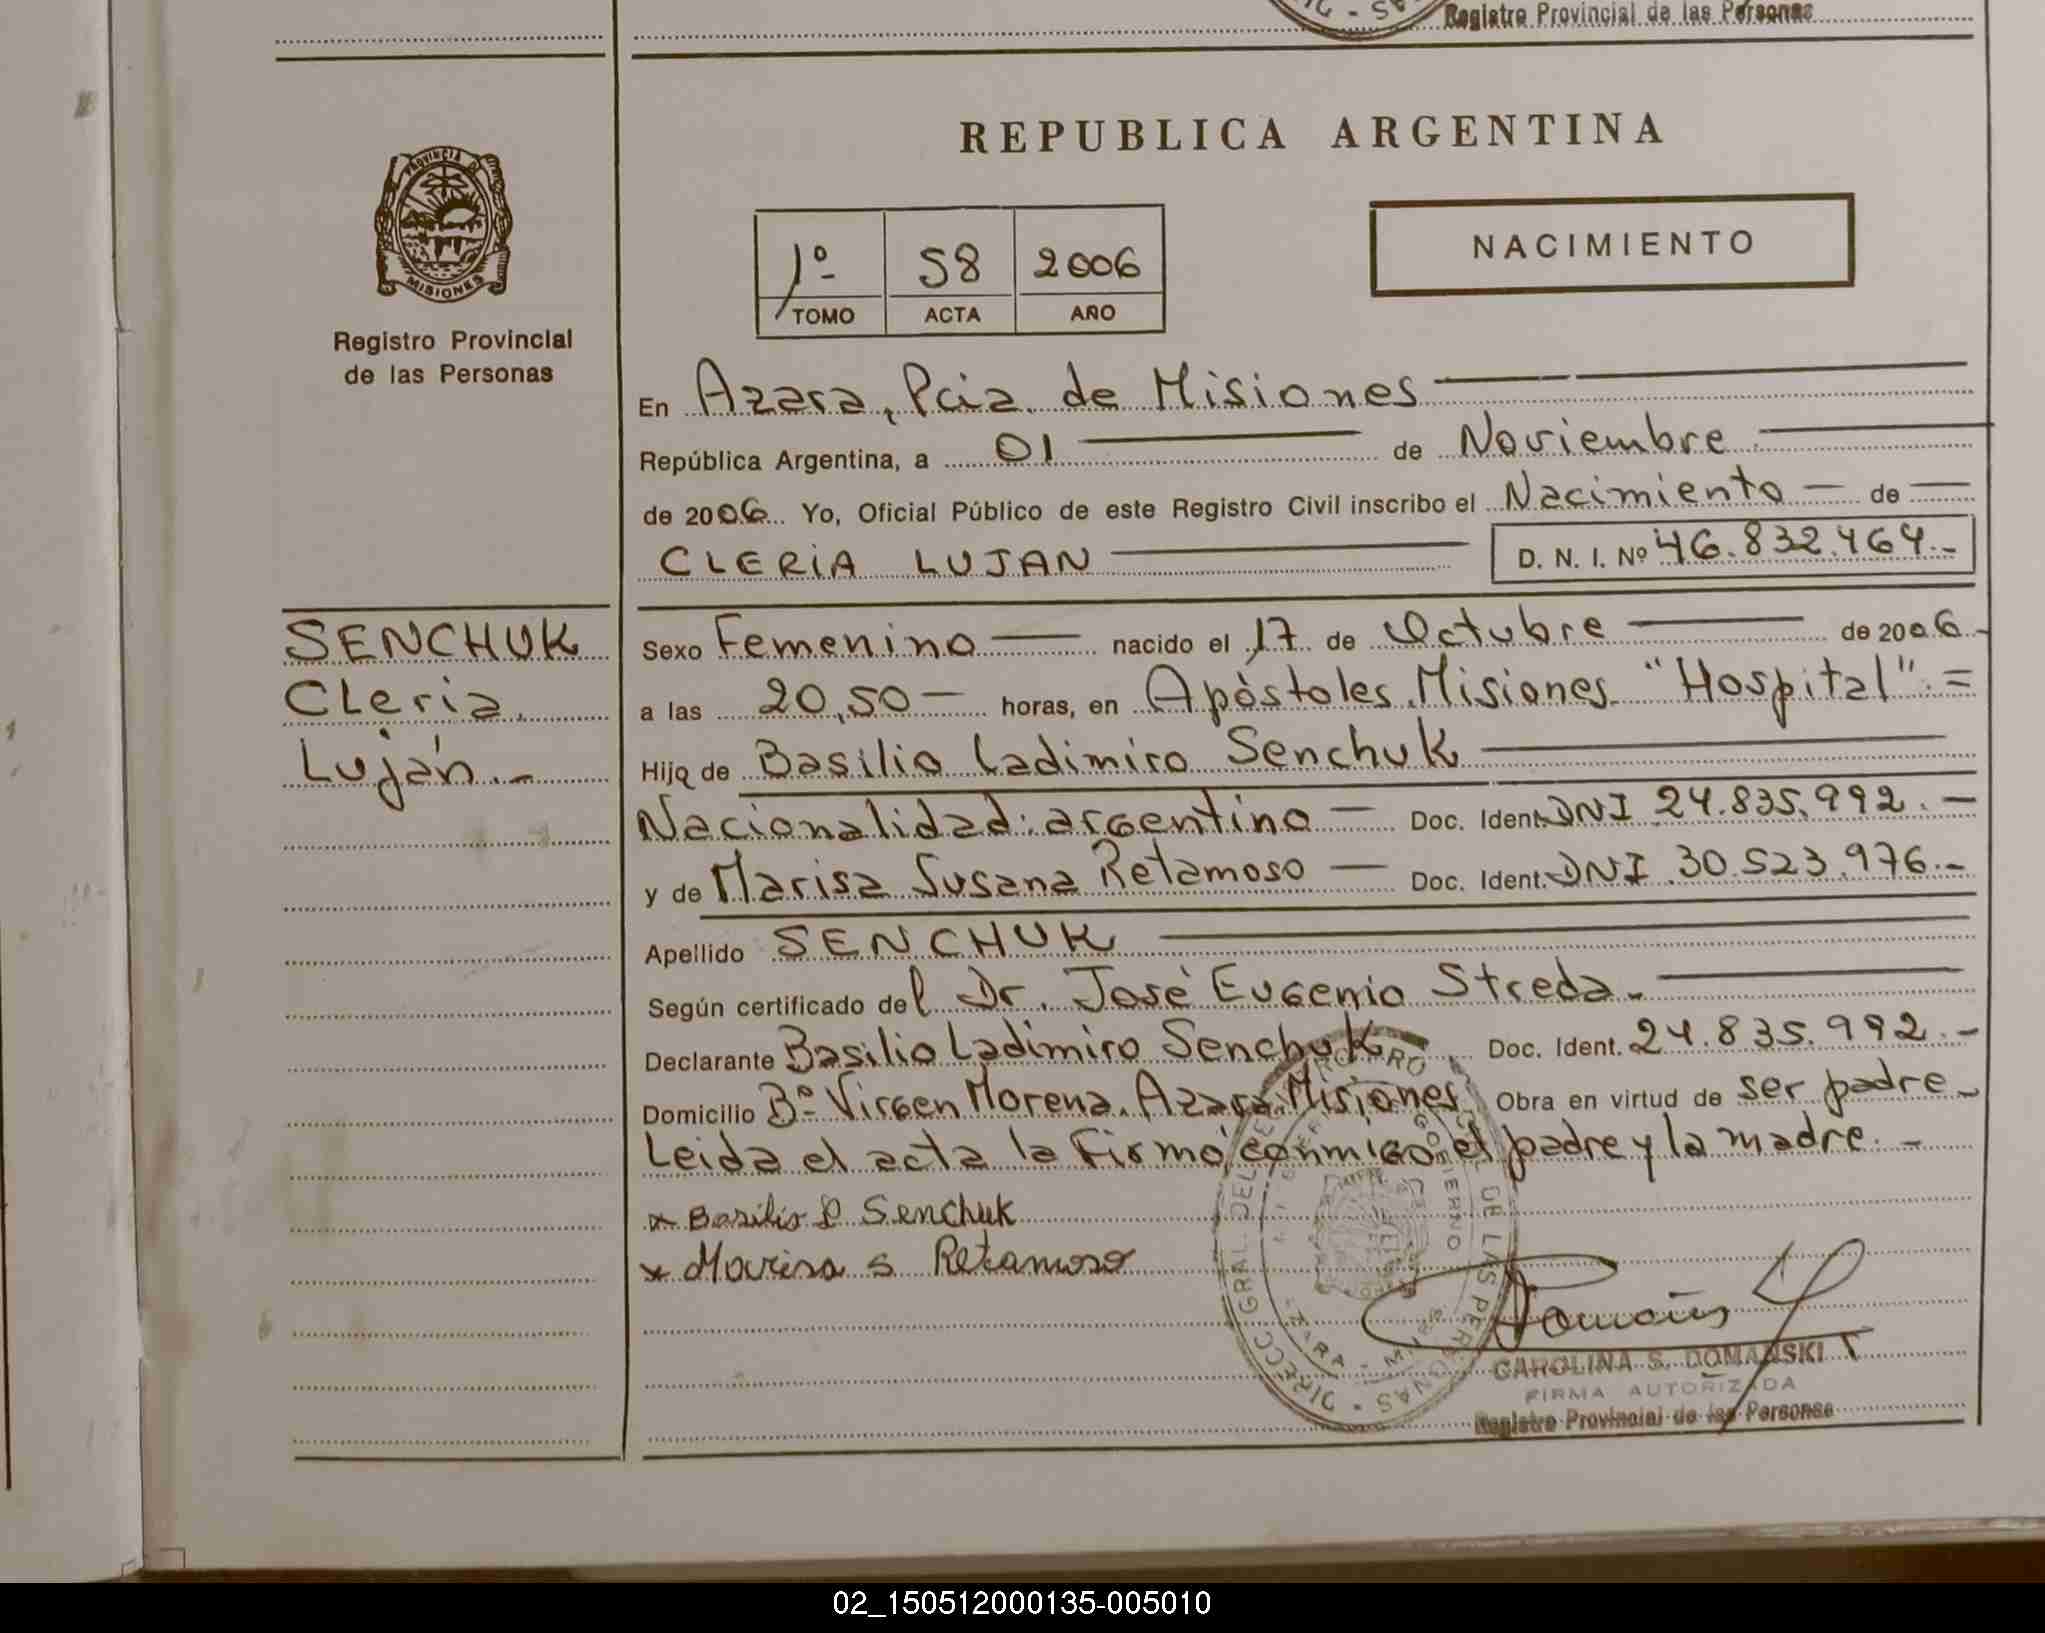 Registro Provincial de las Personas
PROVINCIA DE
MISIONES
Registro Provincial
de las Personas
REPUBLICA ARGENTINA
1º 58 2006
TOMO ACTA AÑO
NACIMIENTO
En Azara, Pcia. de Misiones
República Argentina, a 01 de Noviembre
de 2006 Yo, Oficial Público de este Registro Civil inscribo el Nacimiento — de —
CLERIA LUJAN D. N. I. Nº 46.832.464.-
SENCHUK
Cleria
Luján.-
Sexo Femenino — nacido el 17 de Octubre — de 2006.-
a las 20,50 — horas, en Apóstoles, Misiones "Hospital". =
Hija de Basilio Ladimiro Senchuk
Nacionalidad: argentino — Doc. Ident. DNI 24.835.992.-
y de Marisa Susana Retamoso — Doc. Ident. DNI 30.523.976.-
Apellido SENCHUK
Según certificado del Dr. José Eugenio Streda.
Declarante Basilio Ladimiro Senchuk Doc. Ident. 24.835.992.-
Domicilio Bº Virgen Morena. Azara Misiones Obra en virtud de ser padre-
Leida el acta la Firmó conmigo el padre y la madre.-
x Basilio L Senchuk
x Marisa S Retamoso
CAROLINA S. DOMAÑSKI
FIRMA AUTORIZADA
Registro Provincial de las Personas
02_150512000135-005010